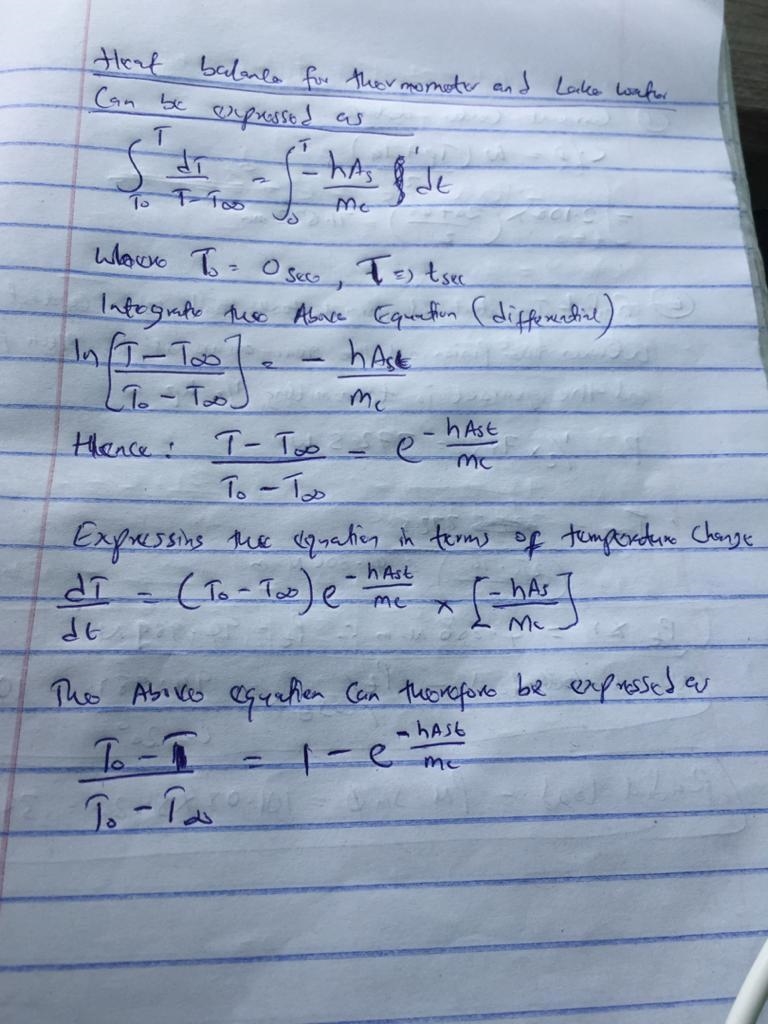 Heat balance for thermometer and Lake water
Can be expressed as
∫_{To}^{T} dT/(T - T∞) = ∫_{0}^{T} - hAs/mc dt
Where To = 0 sec, T => t sec
Integrate the Above Equation (differential)
ln [(T - T∞)/(To - T∞)] = - hAst/mc
Hence: (T - T∞)/(To - T∞) = e^{- hAst/mc}
Expressing the equation in terms of temperature Change
dT/dt = (To - T∞) e^{- hAst/mc} x [- hAs/mc]
The Above equation Can therefore be expressed as
(To - T)/(To - T∞) = 1 - e^{- hAst/mc}